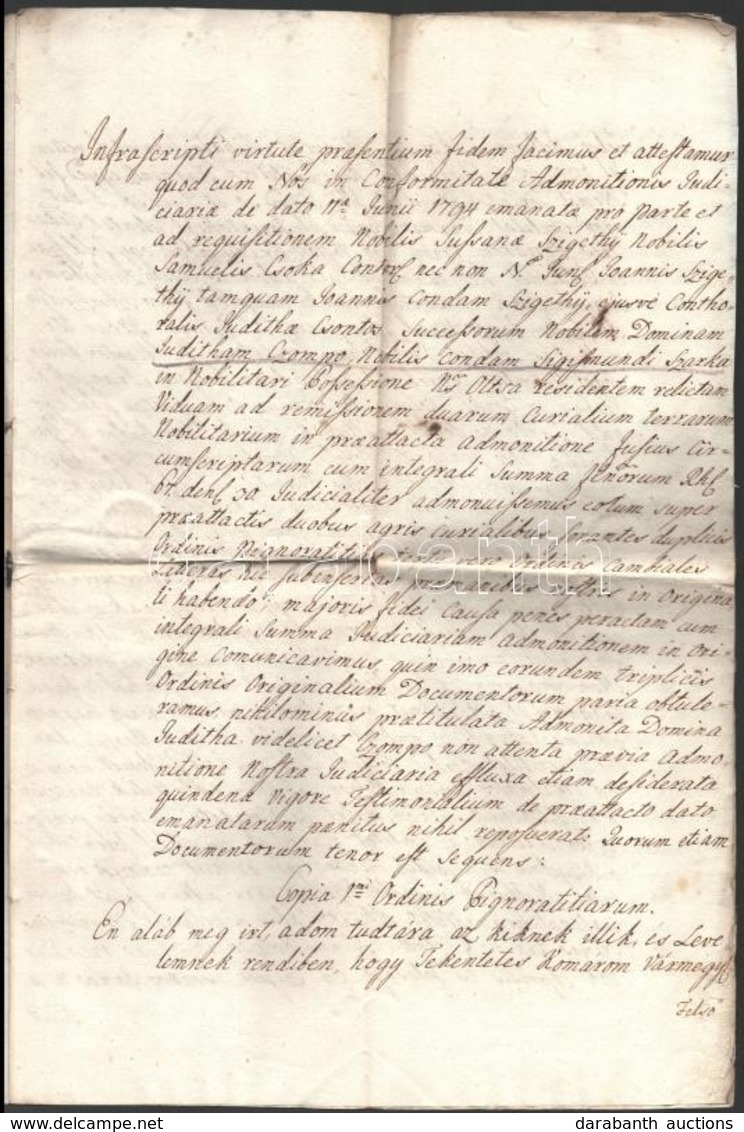 Infrascripti virtute præsentium fidem facimus et attestamur
quod cum Nos in Conformitate Admonitionis Judi-
ciariæ de dato 11ª Junii 1794 emanatæ pro parte et
ad requisitionem Nobilis Susanæ Szigethÿ Nobilis
Samuelis Csoka nec non Joannis Szige-
thÿ tamquam Joannis condam Szigethÿ, ejusve Contho-
ralis Judithæ Csontos Successorum Nobilem Dominam
Juditham Czompo, Nobilis condam Sigismundi Szarka
in Nobilitari Possessione Oltsa residentem relictam
Viduam ad remissionem duarum Curialium terrarum
Nobilitarium in præattacta admonitione fusius cir-
cumscriptarum cum integrali Summa fl
67. den 30. Judicialiter admonuissemus eotum super
præattactis duobus agris curialibus sonantes duplicis
Ordinis vero Ordinis Cambiales
Literas hic subinsertas præmanibus in origina
li habendo; majoris fidei causa penes peractam cum
integrali Summa Judiciariam admonitionem in ori-
gine comunicavimus, quin imo eorundem triplicis
Ordinis Originalium Documentorum paria obtule-
ramus, nihilominus prætitulata Admonita Domina
Juditha videlicet Czompo non attenta prævia Admo-
nitione Nostra Judiciaria effluxa etiam desiderata
quindena vigore Testimonialium de præattacto dato
emanatarum pænitus nihil reposuerat: Quorum etiam
Documentorum tenor est sequens:
Copia 1mi Ordinis Pignoratitiarum.
Én aláb meg irt, adom tudtára az kiknek illik, és Leve
lemnek rendiben, hogy Tekentetes Komárom Vármegye
Felső
darabanth
darabanth auctions